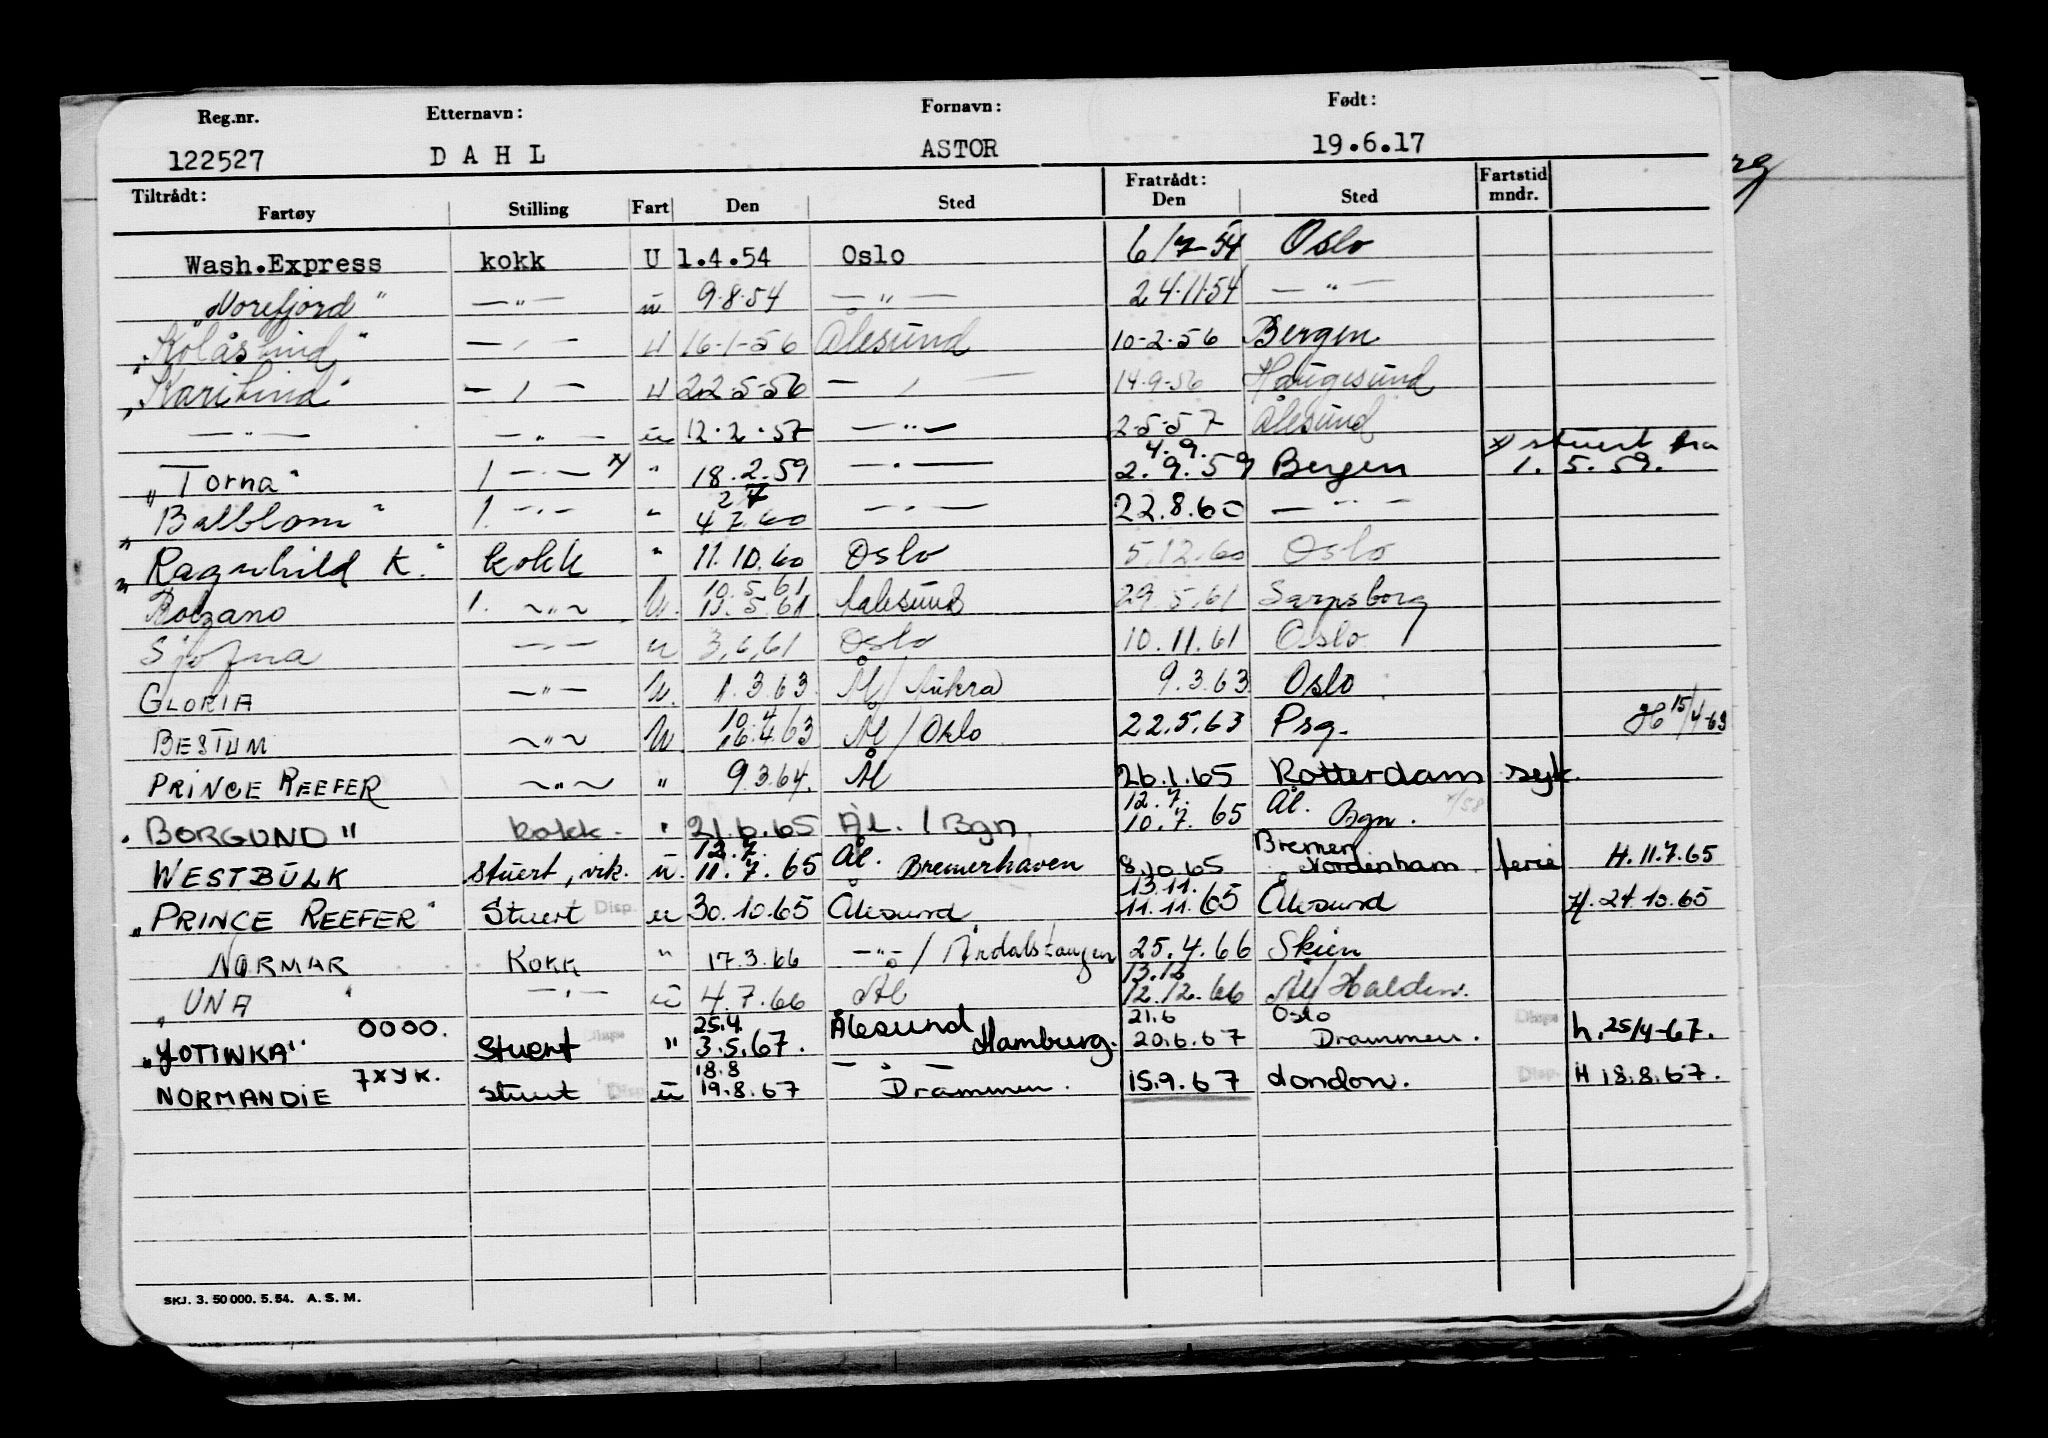 Reg.nr. Etternavn: Fornavn: Født:
122527 DAHL ASTOR 19.6.17
Tiltrådt: Fratrådt: Fartstid
Fartøy Stilling Fart Den Sted Den Sted mndr.
Wash.Express kokk U 1.4.54 Oslo 6/7-54 Oslo
"Norefjord" —"— u 9.8.54 —"— 24.11.54 —"—
"Kolåstind" —"— U 16-1-56 Ålesund 10-2-56 Bergen
"Karitind" —"— U 22-5-56 —"— 14-9-56 Haugesund
—"— —"— u 12.2.57 —"— 2-5-57 Ålesund
4.9. x) stuert fra
"Torna" 1 —"— x) " 18.2.59 —"— 2.9.59 Bergen 1.5.59.
"Balblom" 1. —"— " 4.7.60 —"— 22.8.60 —"—
"Ragnhild K." kokk " 11.10.60 Oslo 5.12.60 Oslo
10.5.61
Bolzano 1. —"— U. 11.5.61 Aalesund 29.5.61 Sarpsborg
Sjofna —"— u 3.6.61 Oslo 10.11.61 Oslo
GLORIA —"— U. 1.3.63. Ål/Aukra 9.3.63 Oslo
10.4
BESTUM —"— U. 16.4.63 Ål/Oslo 22.5.63 Psg. H 15/4-63
PRINCE REEFER —"— " 9.3.64. Ål 26.1.65 Rotterdam syk.
12.7. Ål.
"BORGUND" kokk. " 21.6.65 ÅL. / Bgn. 10.7.65 Psgn.
12.7. Ål. Bremen
WESTBULK stuert, vik. u. 11.7.65 Bremerhaven 8.10.65 Nordenham ferie H. 11.7.65
13.11.
"PRINCE REEFER" Stuert Disp. u 30.10.65 Ålesund 11.11.65 Ålesund H. 24.10.65
NORMAR Kokk " 17.3.66 —"— / Årdalstangen 25.4.66 Skien
13.12
"UNA" —"— u 4.7.66 Ål 12.12.66 Ål/Halden.
0000. 25.4. Ålesund 21.6 Oslo
"JOTINKA" Stuert Disp " 3.5.67. Hamburg. 20.6.67 Drammen. Disp h. 25/4-67.
7XYK. 18.8 —"—
NORMANDIE stuert Disp. u 19.8.67 Drammen. 15.9.67 London. Disp. H 18.8.67.
SKJ. 3. 50 000. 5. 54. A. S. M.